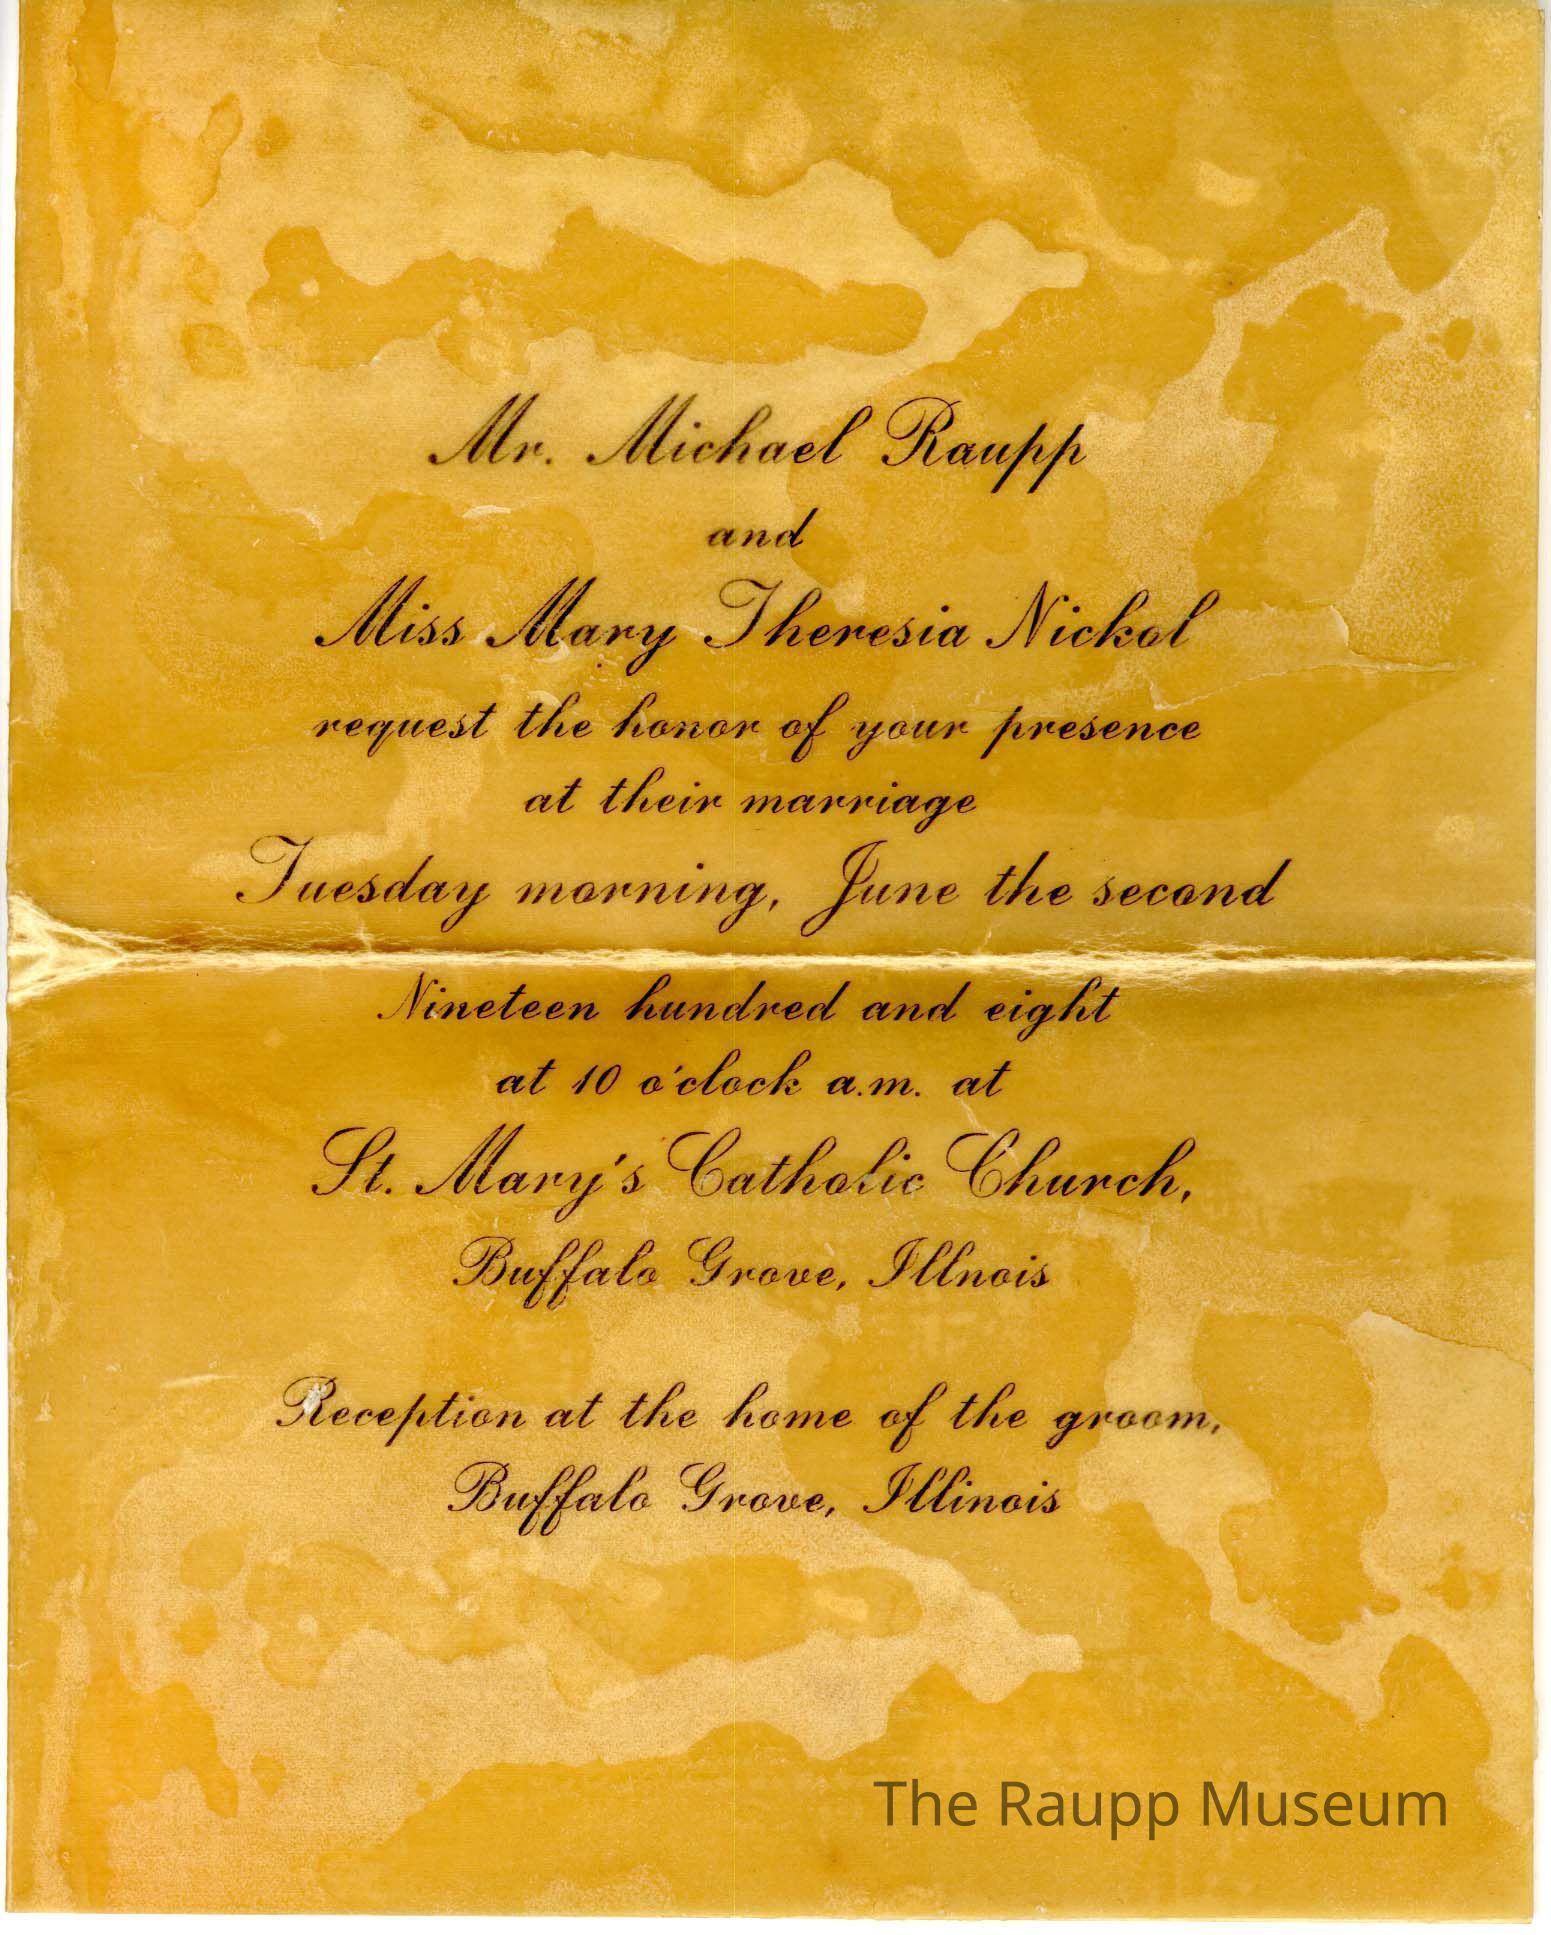 Mr. Michael Raupp
and
Miss Mary Theresia Nickol
request the honor of your presence
at their marriage
Tuesday morning, June the second
Nineteen hundred and eight
at 10 o'clock a.m. at
St. Mary's Catholic Church,
Buffalo Grove, Illnois
Reception at the home of the groom,
Buffalo Grove, Illinois
The Raupp Museum